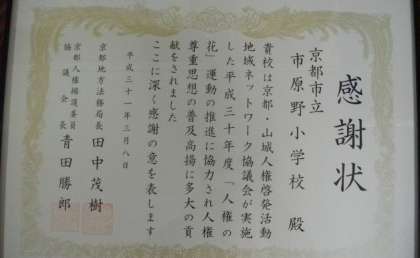 感謝状
京都市立
市原野小学校 殿
貴校は京都・山城人権啓発活動
地域ネットワーク協議会が実施
した平成三十年度「人権の
花」運動の推進に協力され人権
尊重思想の普及高揚に多大の貢
献をされました
ここに深く感謝の意を表します
平成三十一年三月八日
京都地方法務局長 田中茂樹
京都人権擁護委員
協議会長 青田勝郎